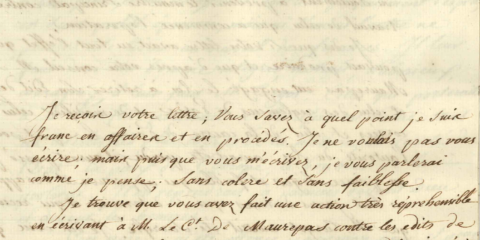 Je recois votre lettre; Vous savez à quel point je suis
franc en affaires et en procédés. Je ne voulais pas vous
écrire; mais puis que vous m'ecrivez, je vous parlerai
comme je pense. Sans colere et sans faiblesse.
Je trouve que vous avez fait une action très réprehensible
en écrivant à M. Le Ct. De Maurepas contre les édits de